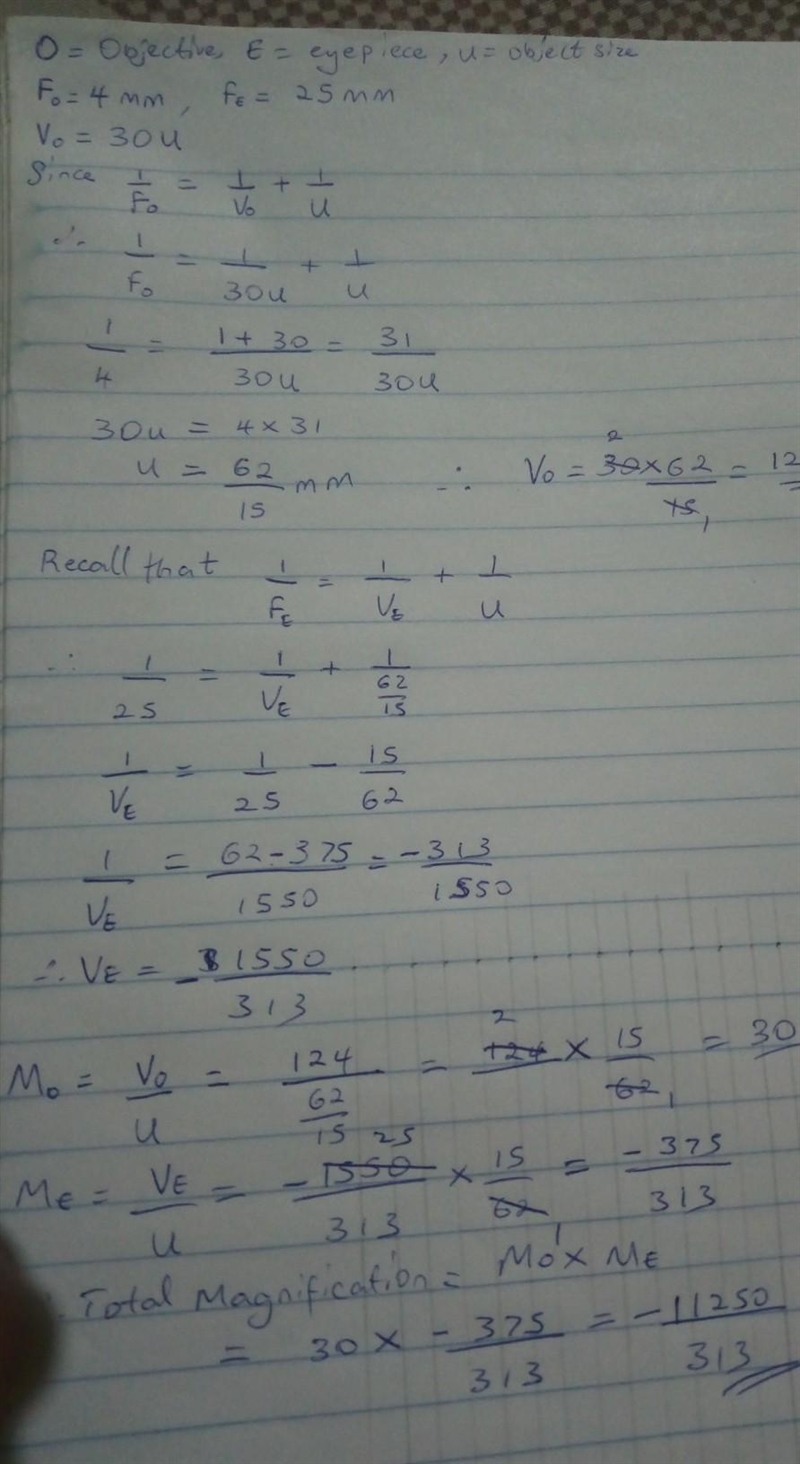 O = Objective, E = eyepiece, u = object size
F₀ = 4 mm, fE = 25 mm
V₀ = 30u
Since 1/F₀ = 1/V₀ + 1/u
∴ 1/F₀ = 1/30u + 1/u
1/4 = (1 + 30)/30u = 31/30u
30u = 4 × 31
u = 62/15 mm ∴ V₀ = (30 × 62)/15 = 12
Recall that 1/FE = 1/VE + 1/u
∴ 1/25 = 1/VE + 1/(62/15)
1/VE = 1/25 - 15/62
1/VE = (62 - 375)/1550 = -313/1550
∴ VE = -1550/313
M₀ = V₀/u = 124/(62/15) = 124 × 15/62 = 30
ME = VE/u = -1550/313 × 15/62 = -375/313
Total Magnification = M₀ × ME
= 30 × -375/313 = -11250/313